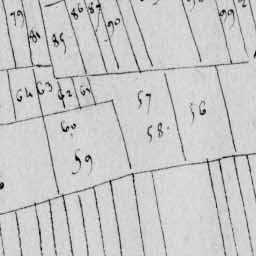 79
85
86 87
90
64 63 62 61
57
58.
56
60
59